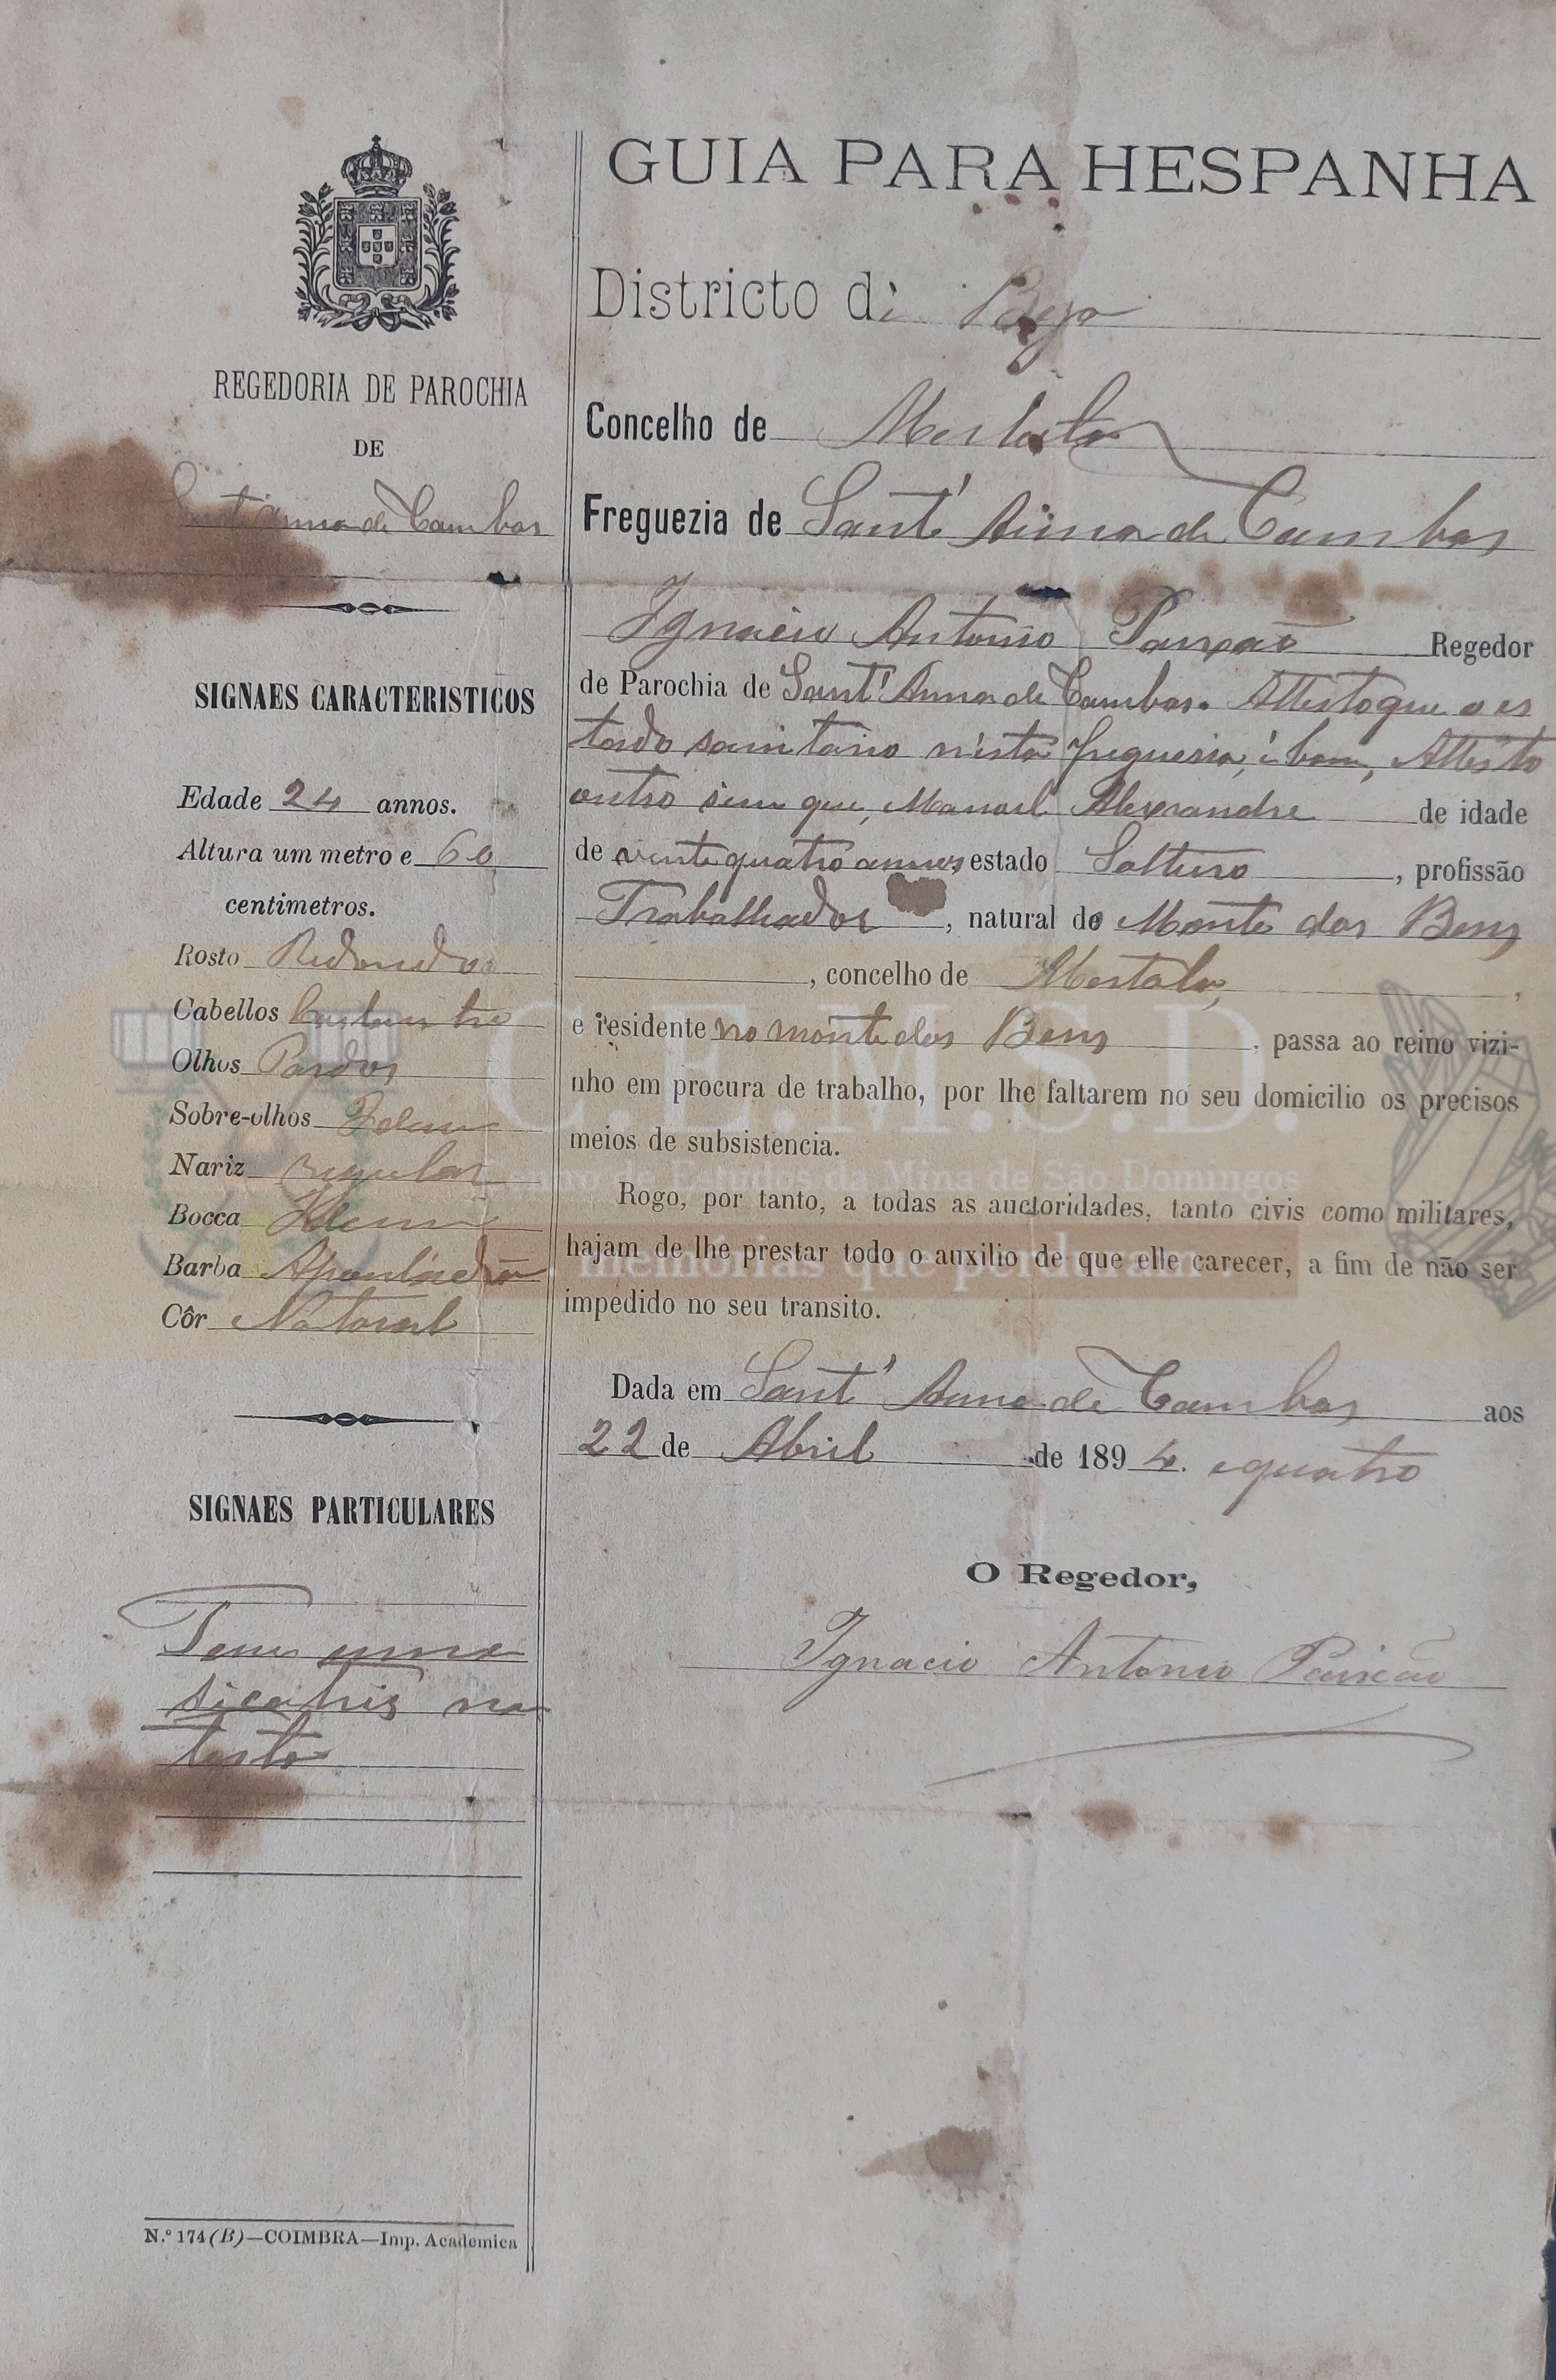 REGEDORIA DE PAROCHIA
DE
Sant'Anna de Cambas
SIGNAES CARACTERISTICOS
Edade 24 annos.
Altura um metro e 60
centimetros.
Rosto Redondo
Cabellos Castanho
Olhos Pardos
Sobre-olhos Idem
Nariz regular
Bocca Idem
Barba
Côr Natoral
SIGNAES PARTICULARES
Tem uma
sicatris na
testa
N.º 174 (B)—COIMBRA—Imp. Academica
GUIA PARA HESPANHA
Districto de Beja
Concelho de Mertola
Freguezia de Sant' Anna de Cambas
Ignacio Antonio Paixão Regedor
de Parochia de Sant' Anna de Cambas. Attesto que o es
tado sanitario n'esta freguesia, é bom, Attesto
outro sim que, Manoel Alexandre de idade
de vinte quatro annos estado Solteiro, profissão
Trabalhador, natural do Monte dos Bens
, concelho de Mertola,
e residente no monte dos Bens, passa ao reino vizi-
nho em procura de trabalho, por lhe faltarem no seu domicilio os precisos
meios de subsistencia.
Rogo, por tanto, a todas as auctoridades, tanto civis como militares,
hajam de lhe prestar todo o auxilio de que elle carecer, a fim de não ser
impedido no seu transito.
Dada em Sant' Anna de Cambas aos
22 de Abril de 1894. e quatro
O Regedor,
Ignacio Antonio Paixão
C.E.M.S.D.
Centro de Estudos da Mina de São Domingos
memórias que perduram